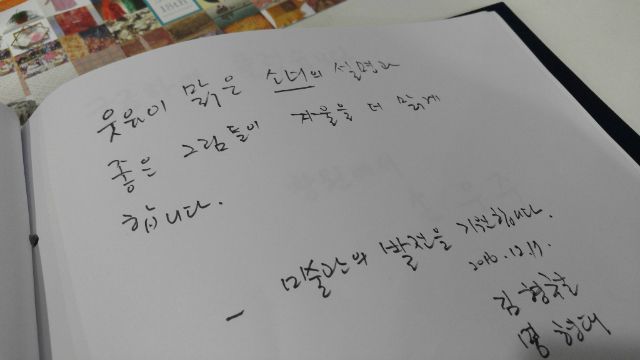 18th
웃음이 맑은 소녀의 설명과
좋은 그림들이 겨울을 더 맑게
합니다.
- 미술관의 발전을 기원합니다.
2016.12.17.
김형준